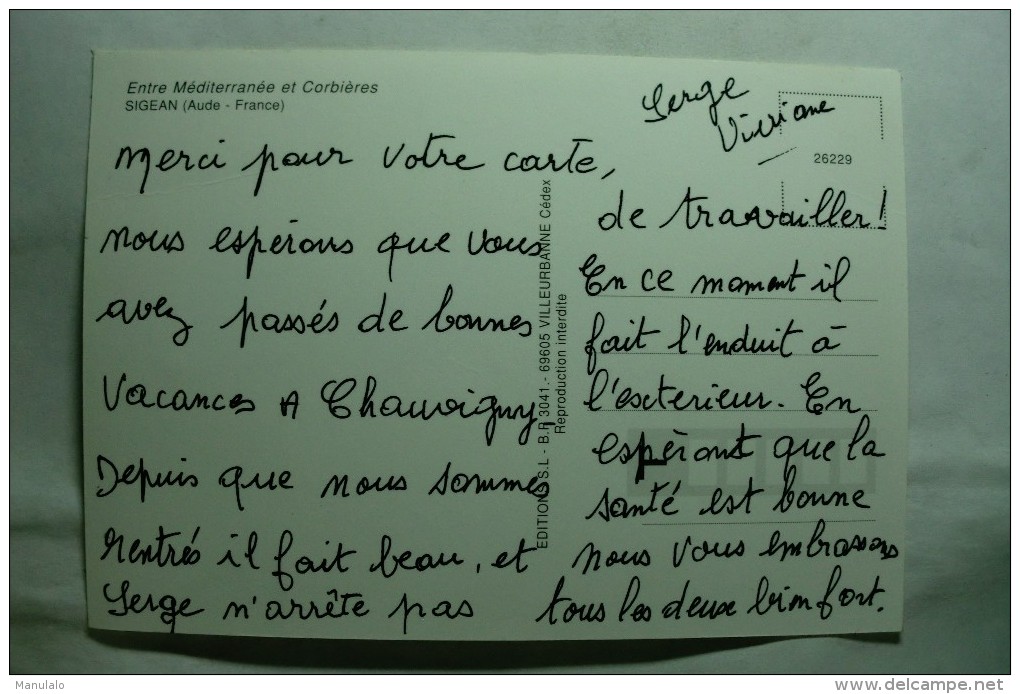 Entre Méditerranée et Corbières
SIGEAN (Aude - France)
Merci pour votre carte,
nous espérons que vous
avez passés de bonnes
vacances A Chauvigny.
Depuis que nous sommes
rentrés il fait beau, et
Serge n'arrête pas
EDITIONS S.L - B.P. 3041.- 69605 VILLEURBANNE Cédex
Reproduction interdite
Serge
Viviane
26229
de travailler!
En ce moment il
fait l'enduit à
l'exterieur. En
espèrant que la
santé est bonne
nous vous embrassons
tous les deux bien fort.
Manulalo
delcampe.net